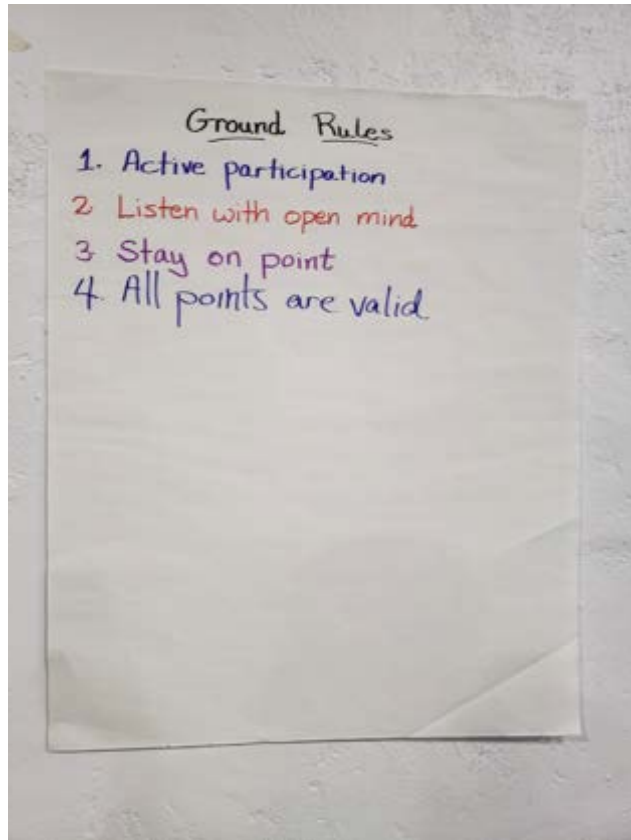 Ground Rules
1. Active participation
2 Listen with open mind
3 Stay on point
4. All points are valid